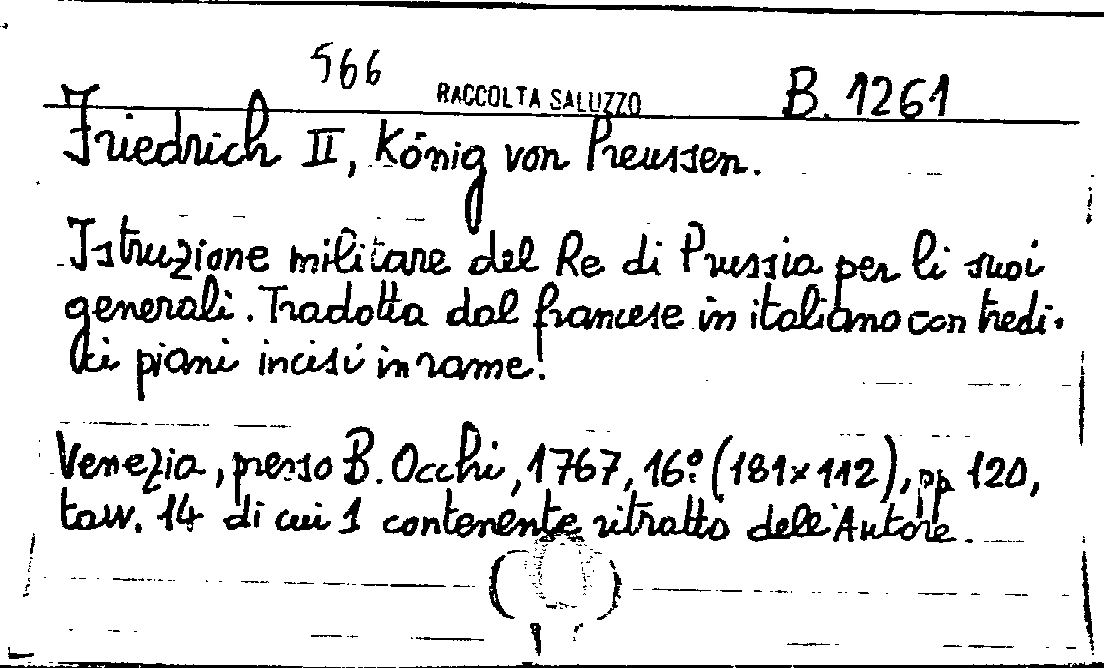 566
RACCOLTA SALUZZO
B. 1261
Friedrich II, König von Preussen.
Istruzione militare del Re di Prussia per li suoi
generali. Tradotta dal francese in italiano con tredi-
ci piani incisi in rame.
Venezia, presso B. Occhi, 1767, 16° (181x112), pp 120,
tavv. 14 di cui 1 contenente ritratto dell'Autore.